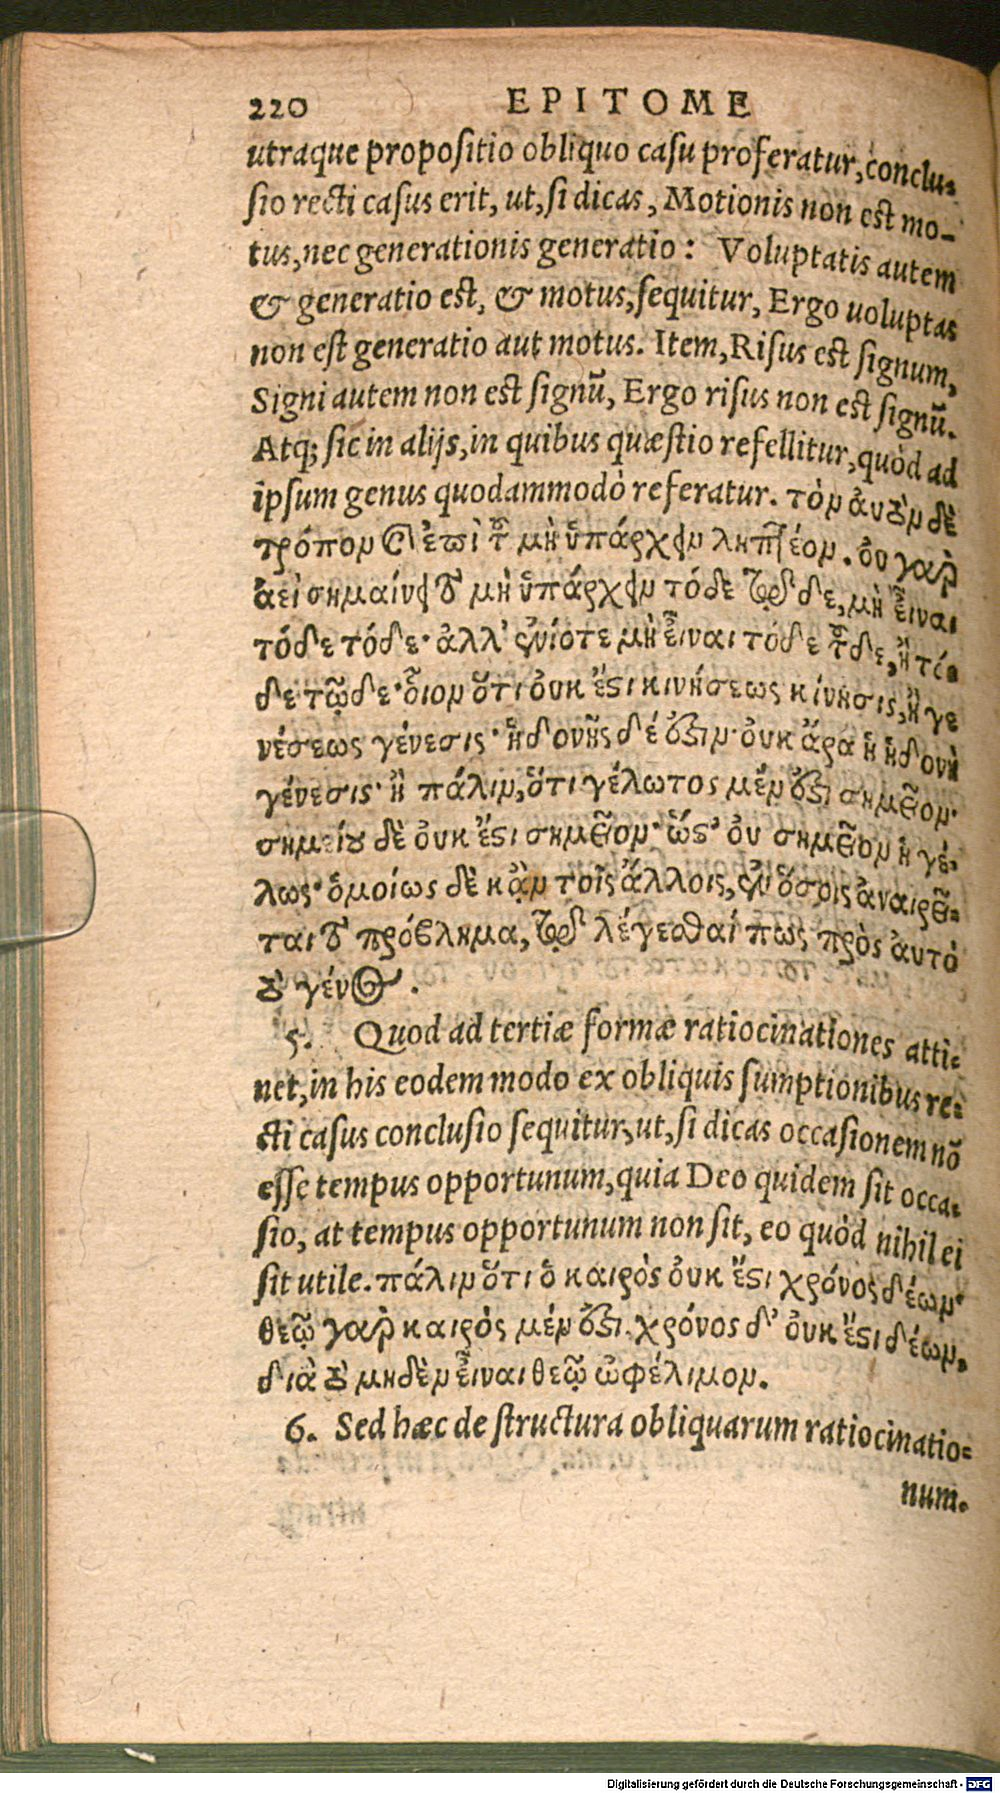 220 EPITOME
utraque propositio obliquo casu proferatur, conclu-
sio recti casus erit, ut, si dicas, Motionis non est mo-
tus, nec generationis generatio: Voluptatis autem
& generatio est, & motus, sequitur, Ergo uoluptas
non est generatio aut motus. Item, Risus est signum,
Signi autem non est signū, Ergo risus non est signū.
Atq; sic in alijs, in quibus quæstio refellitur, quòd ad
ipsum genus quodammodò referatur. τὸν ἀυτὸν δὲ
τρόπον καὶ ἐπὶ τοῦ μὴ ὑπάρχειν ληπτέον. ὀυ γὰρ
ἀεὶ σημαίνει τὸ μὴ ὑπάρχειν τόδε τῷδε, μὴ εἶναι
τόδε τόδε· ἀλλ' ἐνίοτε μὴ εἶναι τόδε τοῦδε, ἢ τό-
δε τῷδε· οἷον ὅτι ὀυκ ἔστι κινήσεως κίνησις, ἢ γε
νέσεως γένεσις· ἡδονῆς δέ ἐστιν· ὀυκ ἄρα ἡ ἡδονὴ
γένεσις· ἢ πάλιν, ὅτι γέλωτος μέν ἐστι σημεῖον·
σημείου δὲ ὀυκ ἔστι σημεῖον· ὥστ' ὀυ σημεῖον ὁ γέ-
λως· ὁμοίως δὲ κἀν τοῖς ἄλλοις, ἐν ὅσοις ἀναιρεῖ-
ται τὸ πρόβλημα, τῷ λέγεσθαί πως πρὸς ἀυτὸ
τὸ γένος.
5. Quod ad tertiæ formæ ratiocinationes atti-
net, in his eodem modo ex obliquis sumptionibus re-
cti casus conclusio sequitur, ut, si dicas occasionem nō
esse tempus opportunum, quia Deo quidem sit occa-
sio, at tempus opportunum non sit, eo quòd nihil ei
sit utile. πάλιν ὅτι ὁ καιρὸς ὀυκ ἔστι χρόνος δέων·
θεῷ γὰρ καιρὸς μέν ἐστι. χρόνος δ' ὀυκ ἔστι δέων.
διὰ τὸ μηδὲν εἶναι θεῷ ὠφέλιμον.
6. Sed hæc de structura obliquarum ratiocinatio-
num.
Digitalisierung gefördert durch die Deutsche Forschungsgemeinschaft - DFG